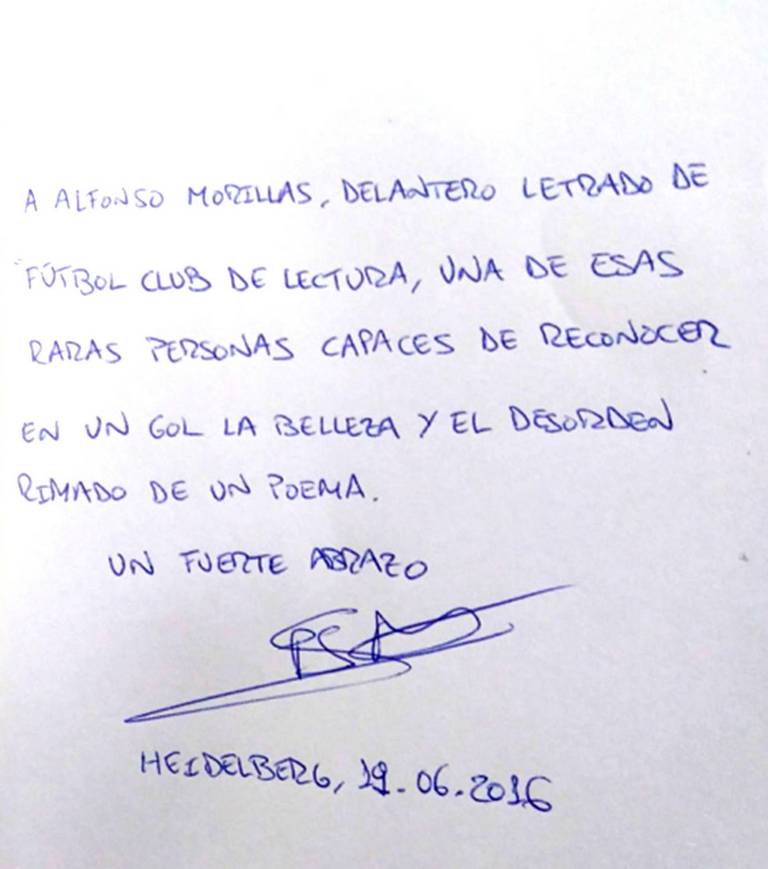 A ALFONSO MORILLAS, DELANTERO LETRADO DE
FÚTBOL CLUB DE LECTURA, UNA DE ESAS
RARAS PERSONAS CAPACES DE RECONOCER
EN UN GOL LA BELLEZA Y EL DESORDEN
RIMADO DE UN POEMA.
UN FUERTE ABRAZO
HEIDELBERG, 19.06.2016